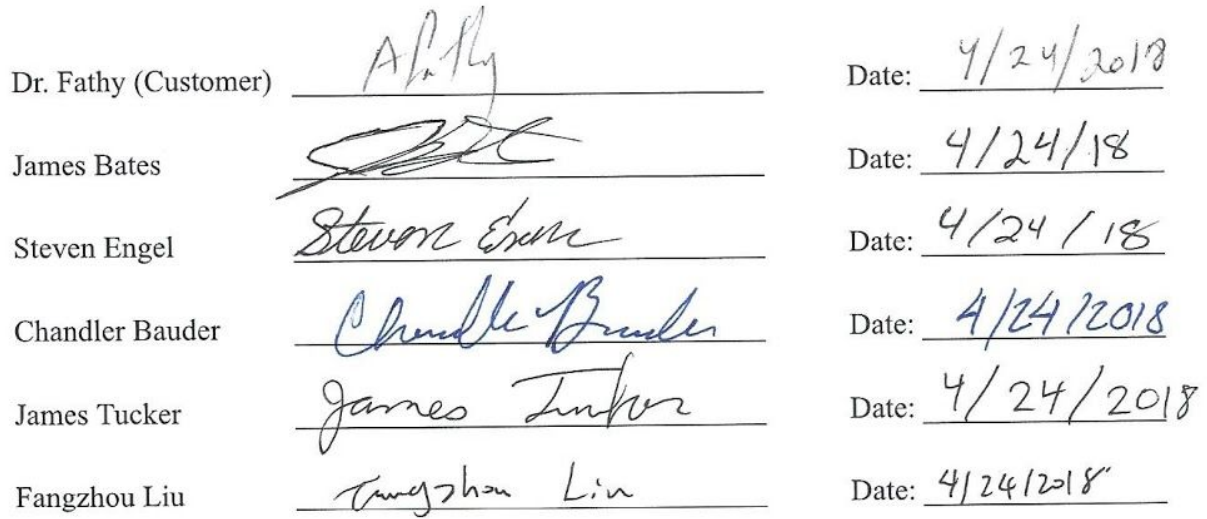 Dr. Fathy (Customer) A Fathy Date: 4/24/2018
James Bates Date: 4/24/18
Steven Engel Steven Engel Date: 4/24/18
Chandler Bauder Chandler Bauder Date: 4/24/2018
James Tucker James Tucker Date: 4/24/2018
Fangzhou Liu Fangzhou Liu Date: 4/24/2018